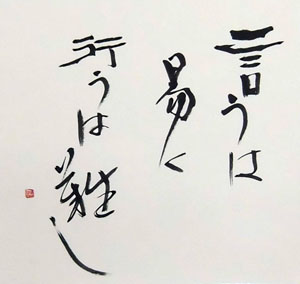 言うは
易く
行うは難し